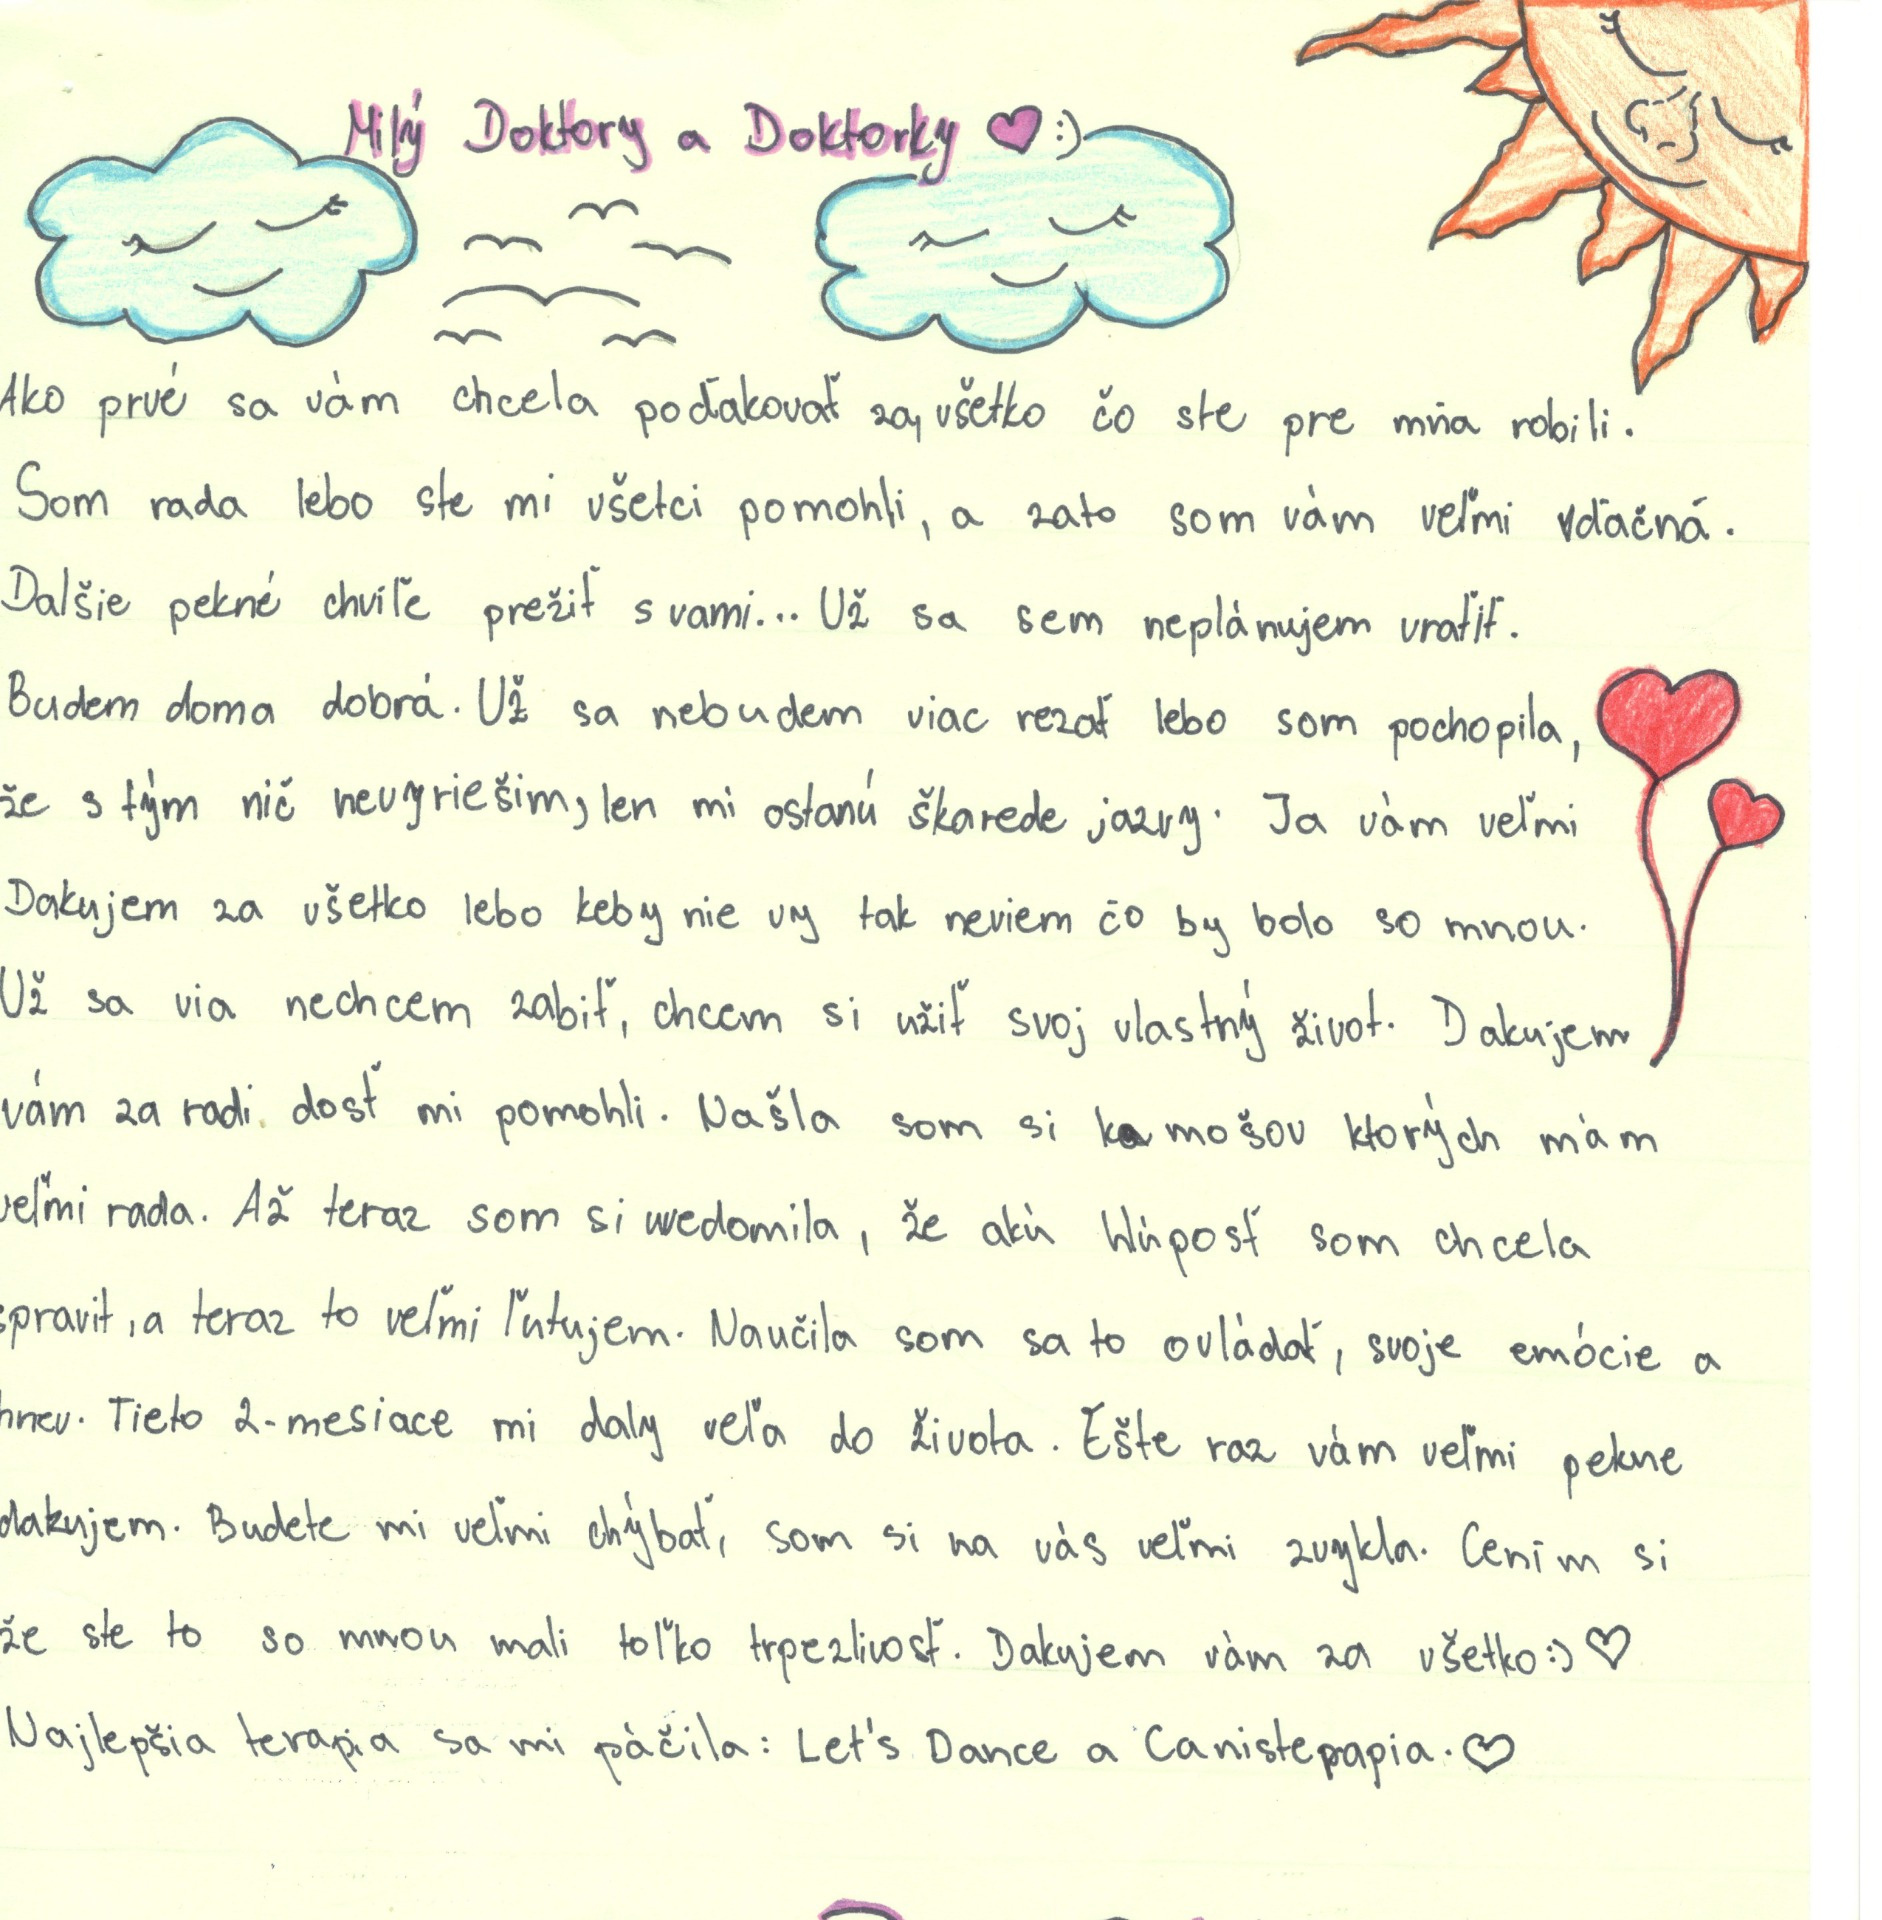 Milý Doktory a Doktorky ♥ :)
Ako prvé sa vám chcela poďakovať za, všetko čo ste pre mňa robili.
Som rada lebo ste mi všetci pomohli, a zato som vám veľmi vďačná.
Dalšie pekné chvíľe prežiť s vami... Už sa sem neplánujem vraťiť.
Budem doma dobrá. Už sa nebudem viac rezať lebo som pochopila,
že s tým nič nevyriešim, len mi ostanú škarede jazvy. Ja vám veľmi
Dakujem za všetko lebo keby nie vy tak neviem čo by bolo so mnou.
Už sa via nechcem zabiť, chcem si užiť svoj vlastný život. Dakujem
vám za radi. dosť mi pomohli. Našla som si kamošov ktorých mám
veľmi rada. Až teraz som si uvedomila, že akú hlúposť som chcela
spravit, a teraz to veľmi ľutujem. Naučila som sa to ovládať, svoje emócie a
hnev. Tieto 2-mesiace mi daly veľa do života. Ešte raz vám veľmi pekne
dakujem. Budete mi veľmi chýbať, som si na vás veľmi zvykla. Cením si
že ste to so mnou mali toľko trpezlivosť. Dakujem vám za všetko :) ♡
Najlepšia terapia sa mi páčila: Let's Dance a Canisterapia. ♡